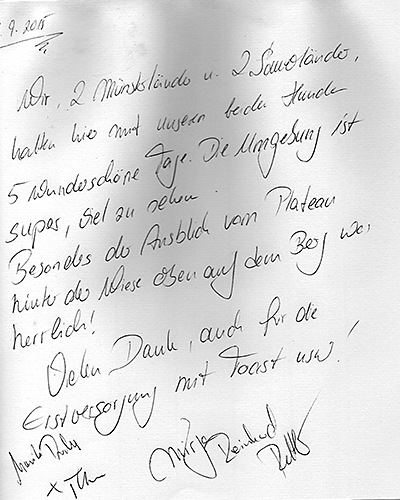 9. 2015
Wir, 2 Münsterländer u. 2 Sauerländer,
hatten hier mit unseren beiden Hunden
5 wunderschöne Tage. Die Umgebung ist
super, viel zu sehen.
Besonders der Ausblick vom Plateau
hinter der Wiese oben auf dem Berg war
herrlich!
Vielen Dank, auch für die
Erstversorgung mit Toast usw!
Mirja Reinhard